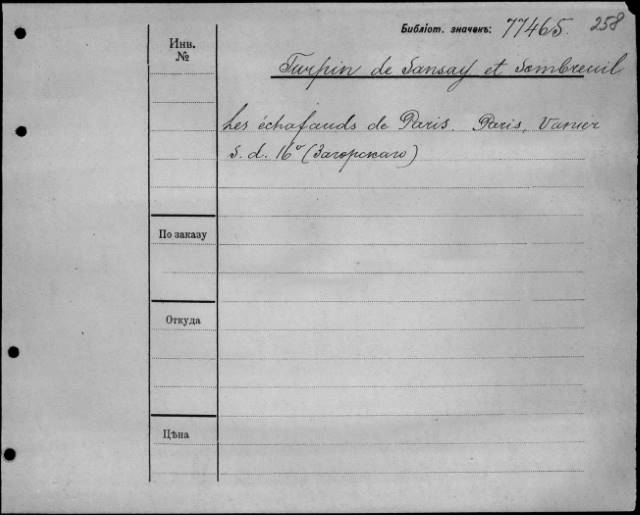 Библіот. значекъ: 77465. 258
Инв.
№
Turpin de Sansay et Sombreuil
Les échafauds de Paris. Paris, Vanier
S. d. 16° (Загорскаго)
По заказу
Откуда
Цѣна